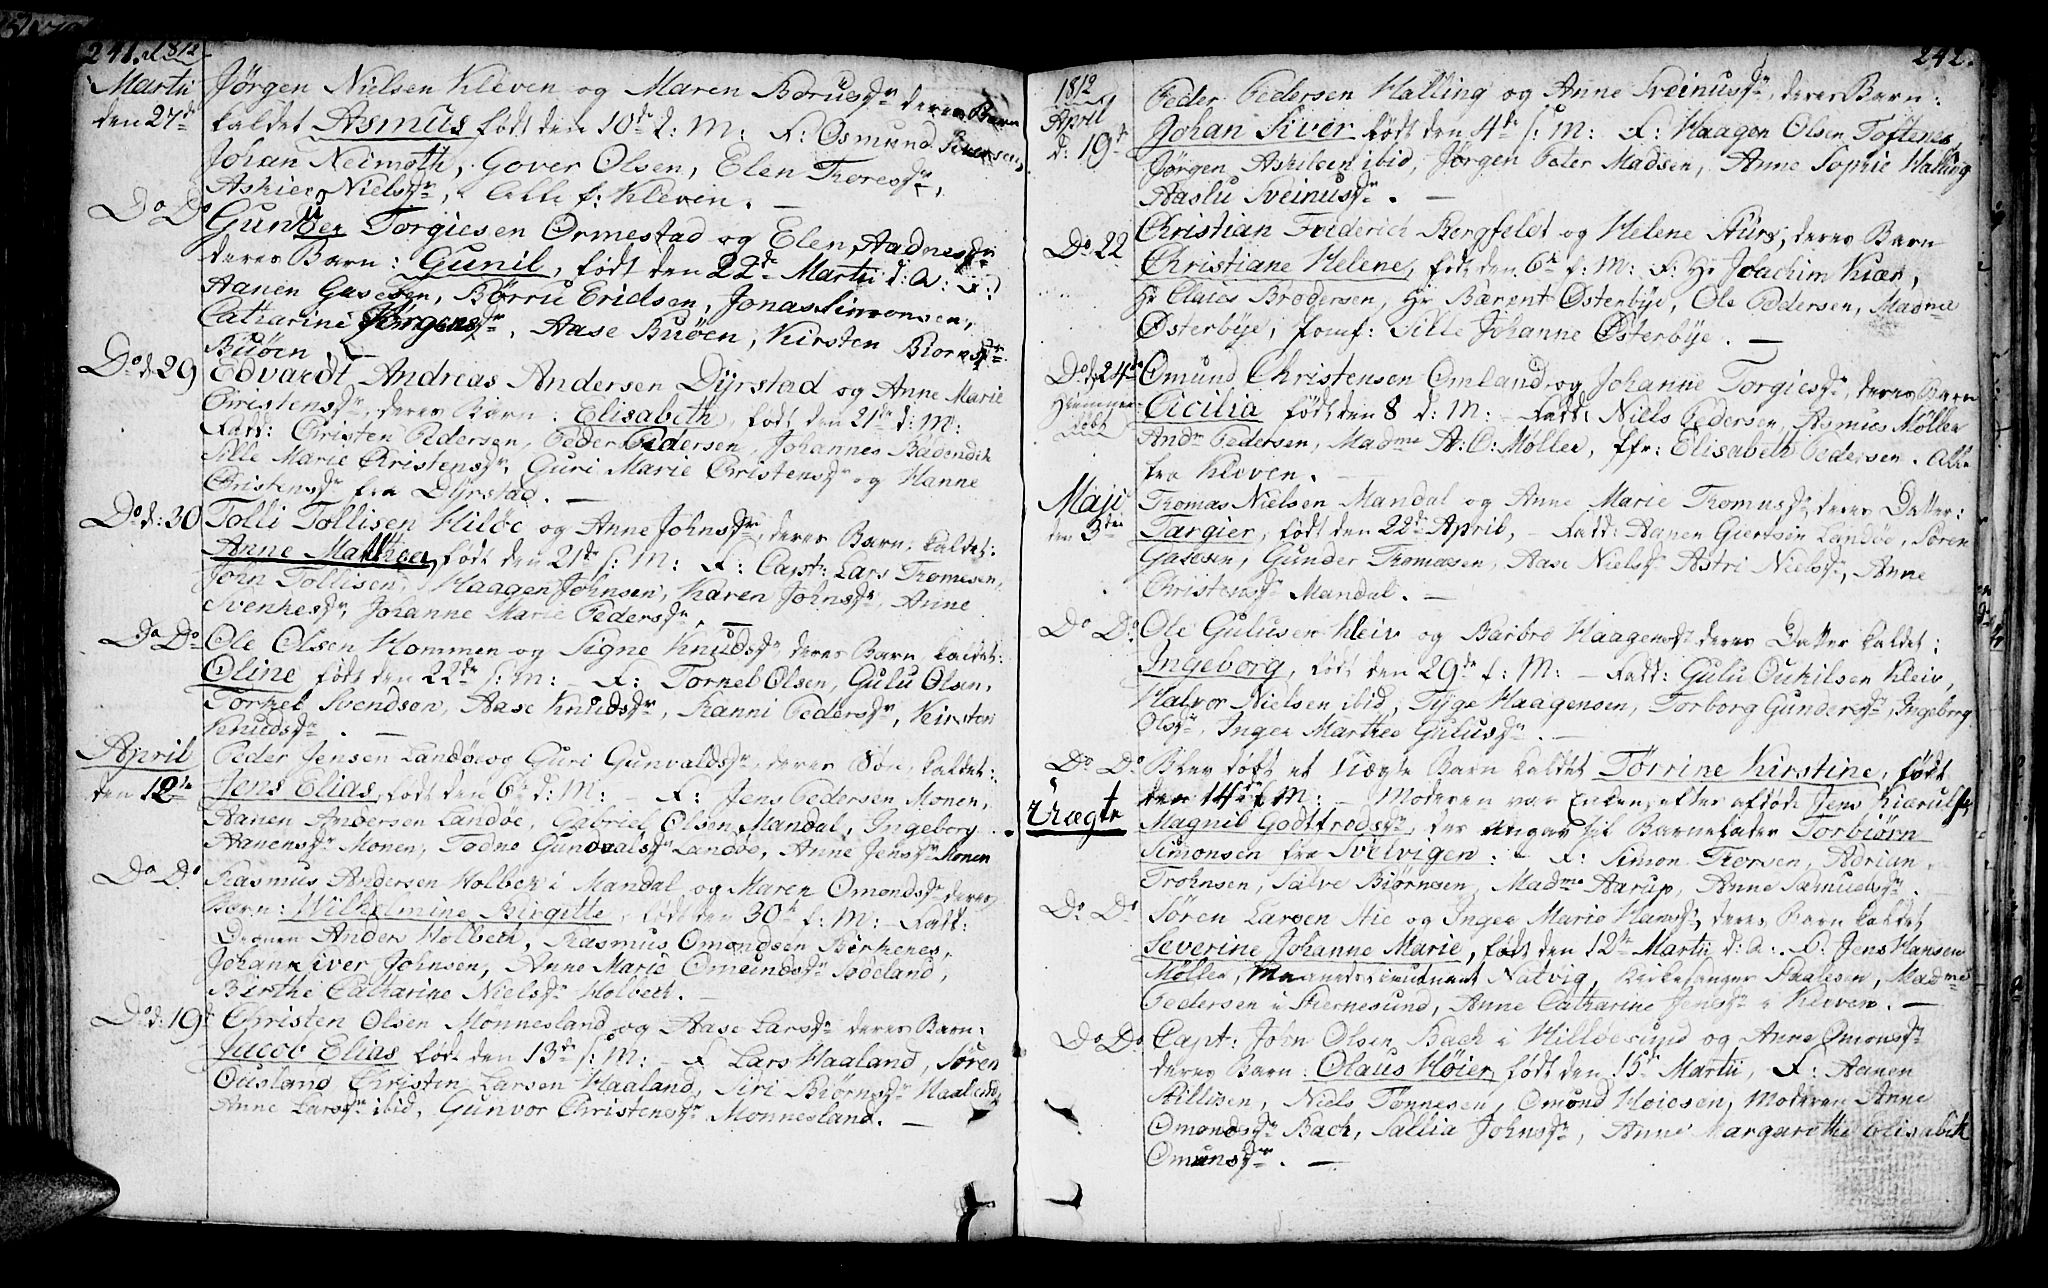 241. 1812
Martii Jørgen Nielsen Kleven og Maren Børius dr deres Barn
den 27de kaldet Asmus født den 10de d: M: F: Osmund Siversen,
Johan Neimoth, Gover Olsen, Elen Thores dr,
Nielsdr, Alle f: Kleven. —
Do Do Gunder Torgiesen Ormestad og Elen Aadnesdr
deres Barn: Gunil, født den 22de Martii d: A: F:
Aanen Gasesen, Børru Eridsen, Jonas Simonsen,
Catharine Jørgensdr, Aase Buøen, Kirsten Biornsdr
Buøen —
Do d: 29 Edvardt Andreas Andersen Dyrstad og Anne Marie
Christensdr, deres Barn: Elisabeth, født den 21de d: M:
Fadd: Christen Pedersen, Peder Pedersen, Johannes Badendik
Sille Marie Christensdr, Guri Marie Christensdr og Hanne
Christensdr fra Dyrstad. —
Do d: 30 Tolli Tollisen Hiløe og Anne Johnsdr, deres Barn, kaldet:
Anne Mathea, født den 21de s: M: F: Capt: Lars Thomesen,
John Tollisen, Haagen Johnsen, Karen Johnsdr, Anne
Svenkesdr, Johanne Marie Pedersdr. —
Do Do Ole Olsen Hommen og Signe Knudsdr deres Barn kaldet:
Oline født den 22de s: M: — F: Tornel Olsen, Gulu Olsen,
Torkel Svendsen, Aase Knudsdr, Ranni Pedersdr, Kirsten
Knudsdr. —
April Peder Jensen Landøe og Guri Gunvaldsdr, deres Søn, kaldet:
den 12te Jens Elias, født den 6te d: M: — F: Jens Pedersen Monen,
Aanen Andersen Landøe, Gabriel Olsen Mandal, Ingeborg
Aanensdr Monen, Todne Gunvaldsdr Landøe, Anne Jensdr Monen
Do Do Rasmus Andersen Holbek i Mandal, og Maren Omondsdr deres
Barn: Wilhelmine Birgitte, født den 30te f: M: — Fadd:
Degnen Anders Holbeth, Rasmus Omondsen Birkenes,
Johan Siver Johnsen, Anne Marie Omundsdr Sødeland,
Birthe Catharine Nielsdr Holbeth. —
Do d: 19de Christen Olsen Monnesland og Aase Larsdr deres Barn:
Jacob Elias født den 13de s: M: — F Lars Haaland, Søren
Ousland Christen Larsen Haaland, Siri Biørnsdr Haaland,
Anne Larsdr ibid, Gunvor Christensdr Monnesland. —
242.
1812 Peder Pedersen Halling og Anne Sveinusdr, deres Barn:
April Johan Siver født den 4de s: M: F: Haagen Olsen Toftenes,
d: 19de Jørgen Askilsen ibid, Jørgen Peter Madsen, Anne Sophie Halling
Aaslu Sveinusdr. —
Do 22 Christian Friderich Bergfeldt og Helene Stürs, deres Barn
Christiane Helene, født den 6te f: M: F: Hr Joachim Kiær,
Hr Claus Brodersen, Hr Bærent Østerbye, Ole Pedersen, Madme
Østerbye, Jomf: Sille Johanne Østerbye. —
Do d: 24de Omund Christensen Omland og Johanne Torgiesdr, deres Barn
Hiemmedøbt Cicilia født den 8 d: M: — Fadd: Niels Pedersen, Asmus Møller
Andr Pedersen, Madme A: O: Møller, Jfr: Elisabeth Pedersen. Alle
fra Kleven. —
Maji Thomas Nielsen Mandal og Anne Marie Thomasdr, deres Datter:
den 3die Targier, født den 22de April, — Fadd: Aanen Giertsen Landøe, Søren
Gasesen, Gunder Thomasen, Aase Nielsdr Astri Nielsdr, Anne
Christensdr Mandal. —
Do Do Ole Gulusen Kleiv og Barbro Haagensdr deres Datter kaldet:
Ingeborg, født den 29de f: M: — Fadd: Gulu Oukilsen Kleiv,
Halvor Nielsen ibid, Tyge Haagensen, Torborg Gundersdr, Ingeborg
Olsdr, Inger Marthea Gulusdr. —
Do Do Blev døbt et Uægte Barn kaldet Torrine Kirstine, født
Uægte den 14de f: M: — Moderen var Enken efter afdøde Jens Kierulf,
Magnil Godtfredsdr, der angav til Barnefader Torbiørn
Simonsen fra Svelvigen: — F: Simon Thorsen, Adrian
Trohnsen, Salve Biørnsen, Madme Aarup, Anne Samuelsdr.
Do Do Søren Larsen Stie og Inger Marie Hansdr, deres Barn kaldet
Severine Johanne Marie, født den 12te Martii d: A: F: Jens Hansen
Møller, Maanedslieutnant Natvig, Kirkesanger Paalesen, Madme
Pedersen i Skernesund, Anne Catharine Jensdr i Kleven. —
Do Do Capt: John Olsen Bach i Hilløesund og Anne Omonsdr
deres Barn: Olaus Høier, født den 15de Martii, F: Aanen
Stillisen, Niels Tønnesen, Omund Hoiesen, Moderen Anne
Omondsdr Bach, Sallia Johnsdr, Anne Margarethe Elisabeth
Omunsdr. —